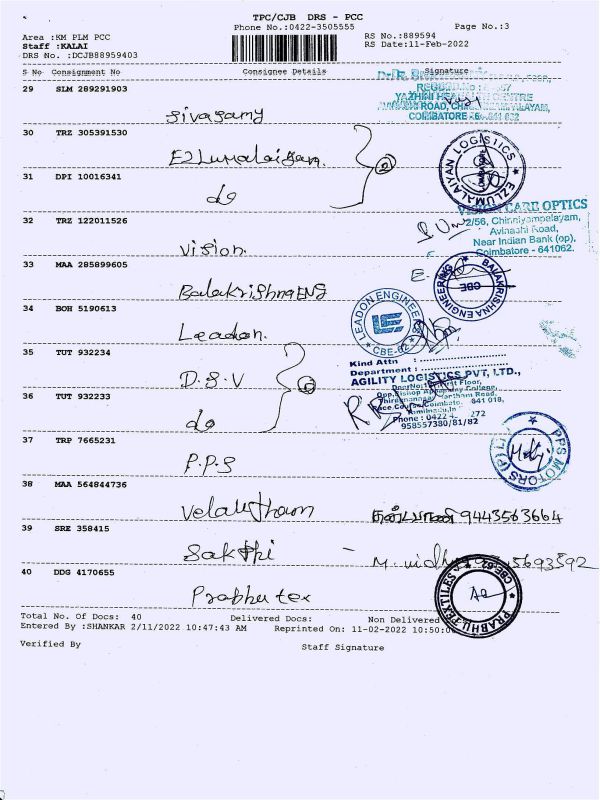 TPC/CJB DRS - PCC
Phone No.:0422-3505555
Page No.:3
Area :KM PLM PCC
RS No.:889594
Staff :KALAI
RS Date:11-Feb-2022
DRS No. :DCJB88959403
S No Consignment No Consignee Details Signature
29 SLM 289291903
Sivasamy
YAZHINI HEALTH CENTRE
COIMBATORE
30 TRZ 305391530
Ezlumalaigan.
EZLUMALAIYAN LOGISTICS
31 DPI 10016341
do
32 TRZ 122011526
Vision.
VISION CARE OPTICS
2/56, Chinniyampalayam,
Avinashi Road,
Near Indian Bank (op).
Coimbatore - 641062.
33 MAA 285899605
Balakrishna ENG
BALAKRISHNA ENGINEERING
CBE
34 BOH 5190613
Leadon.
LEADON ENGINEERS
LE
CBE-62
35 TUT 932234
D.S.V
Kind Attn :
Department :
AGILITY LOGISTICS PVT, LTD.,
Race Course, Coimbatore 641 018,
Phone : 0422
958557380/81/82
36 TUT 932233
do
37 TRP 7665231
P.P.S
PPS MOTORS (P) LTD
38 MAA 564844736
Velautham
9443563664
39 SRE 358415
Sakthi
40 DDG 4170655
Prabhu tex
PRABHU TEXTILES
CBE-62
Total No. Of Docs: 40 Delivered Docs: Non Delivered
Entered By :SHANKAR 2/11/2022 10:47:43 AM Reprinted On: 11-02-2022 10:50:0
Verified By
Staff Signature